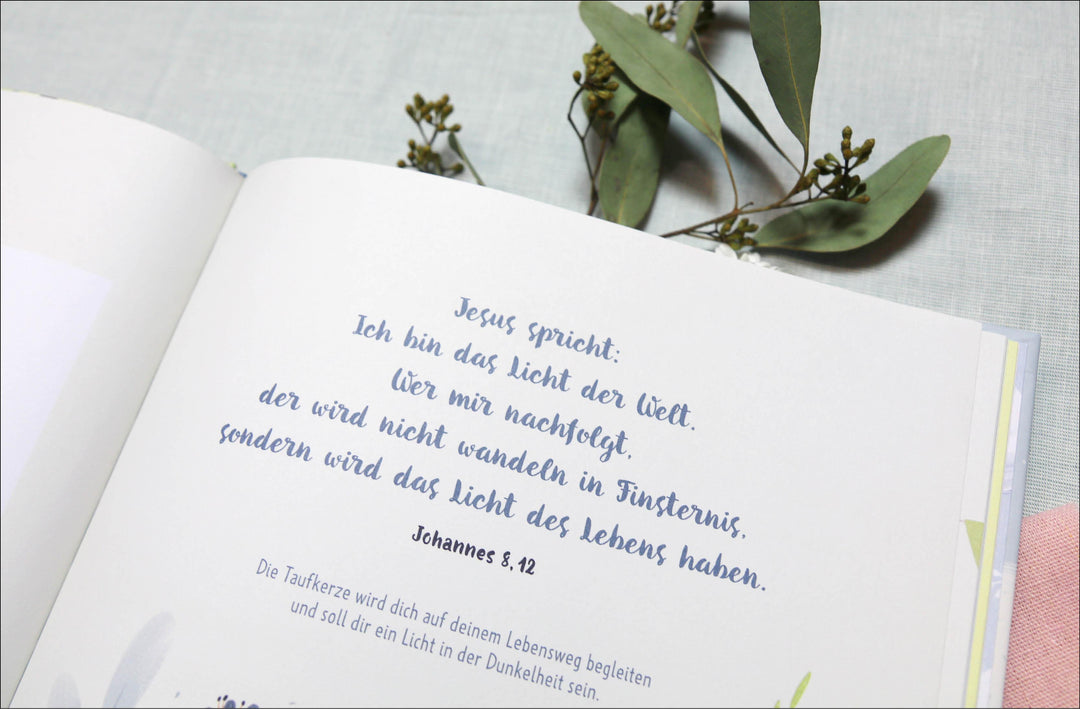 Jesus spricht:
Ich bin das Licht der Welt.
Wer mir nachfolgt,
der wird nicht wandeln in Finsternis,
sondern wird das Licht des Lebens haben.
Johannes 8,12
Die Taufkerze wird dich auf deinem Lebensweg begleiten
und soll dir ein Licht in der Dunkelheit sein.